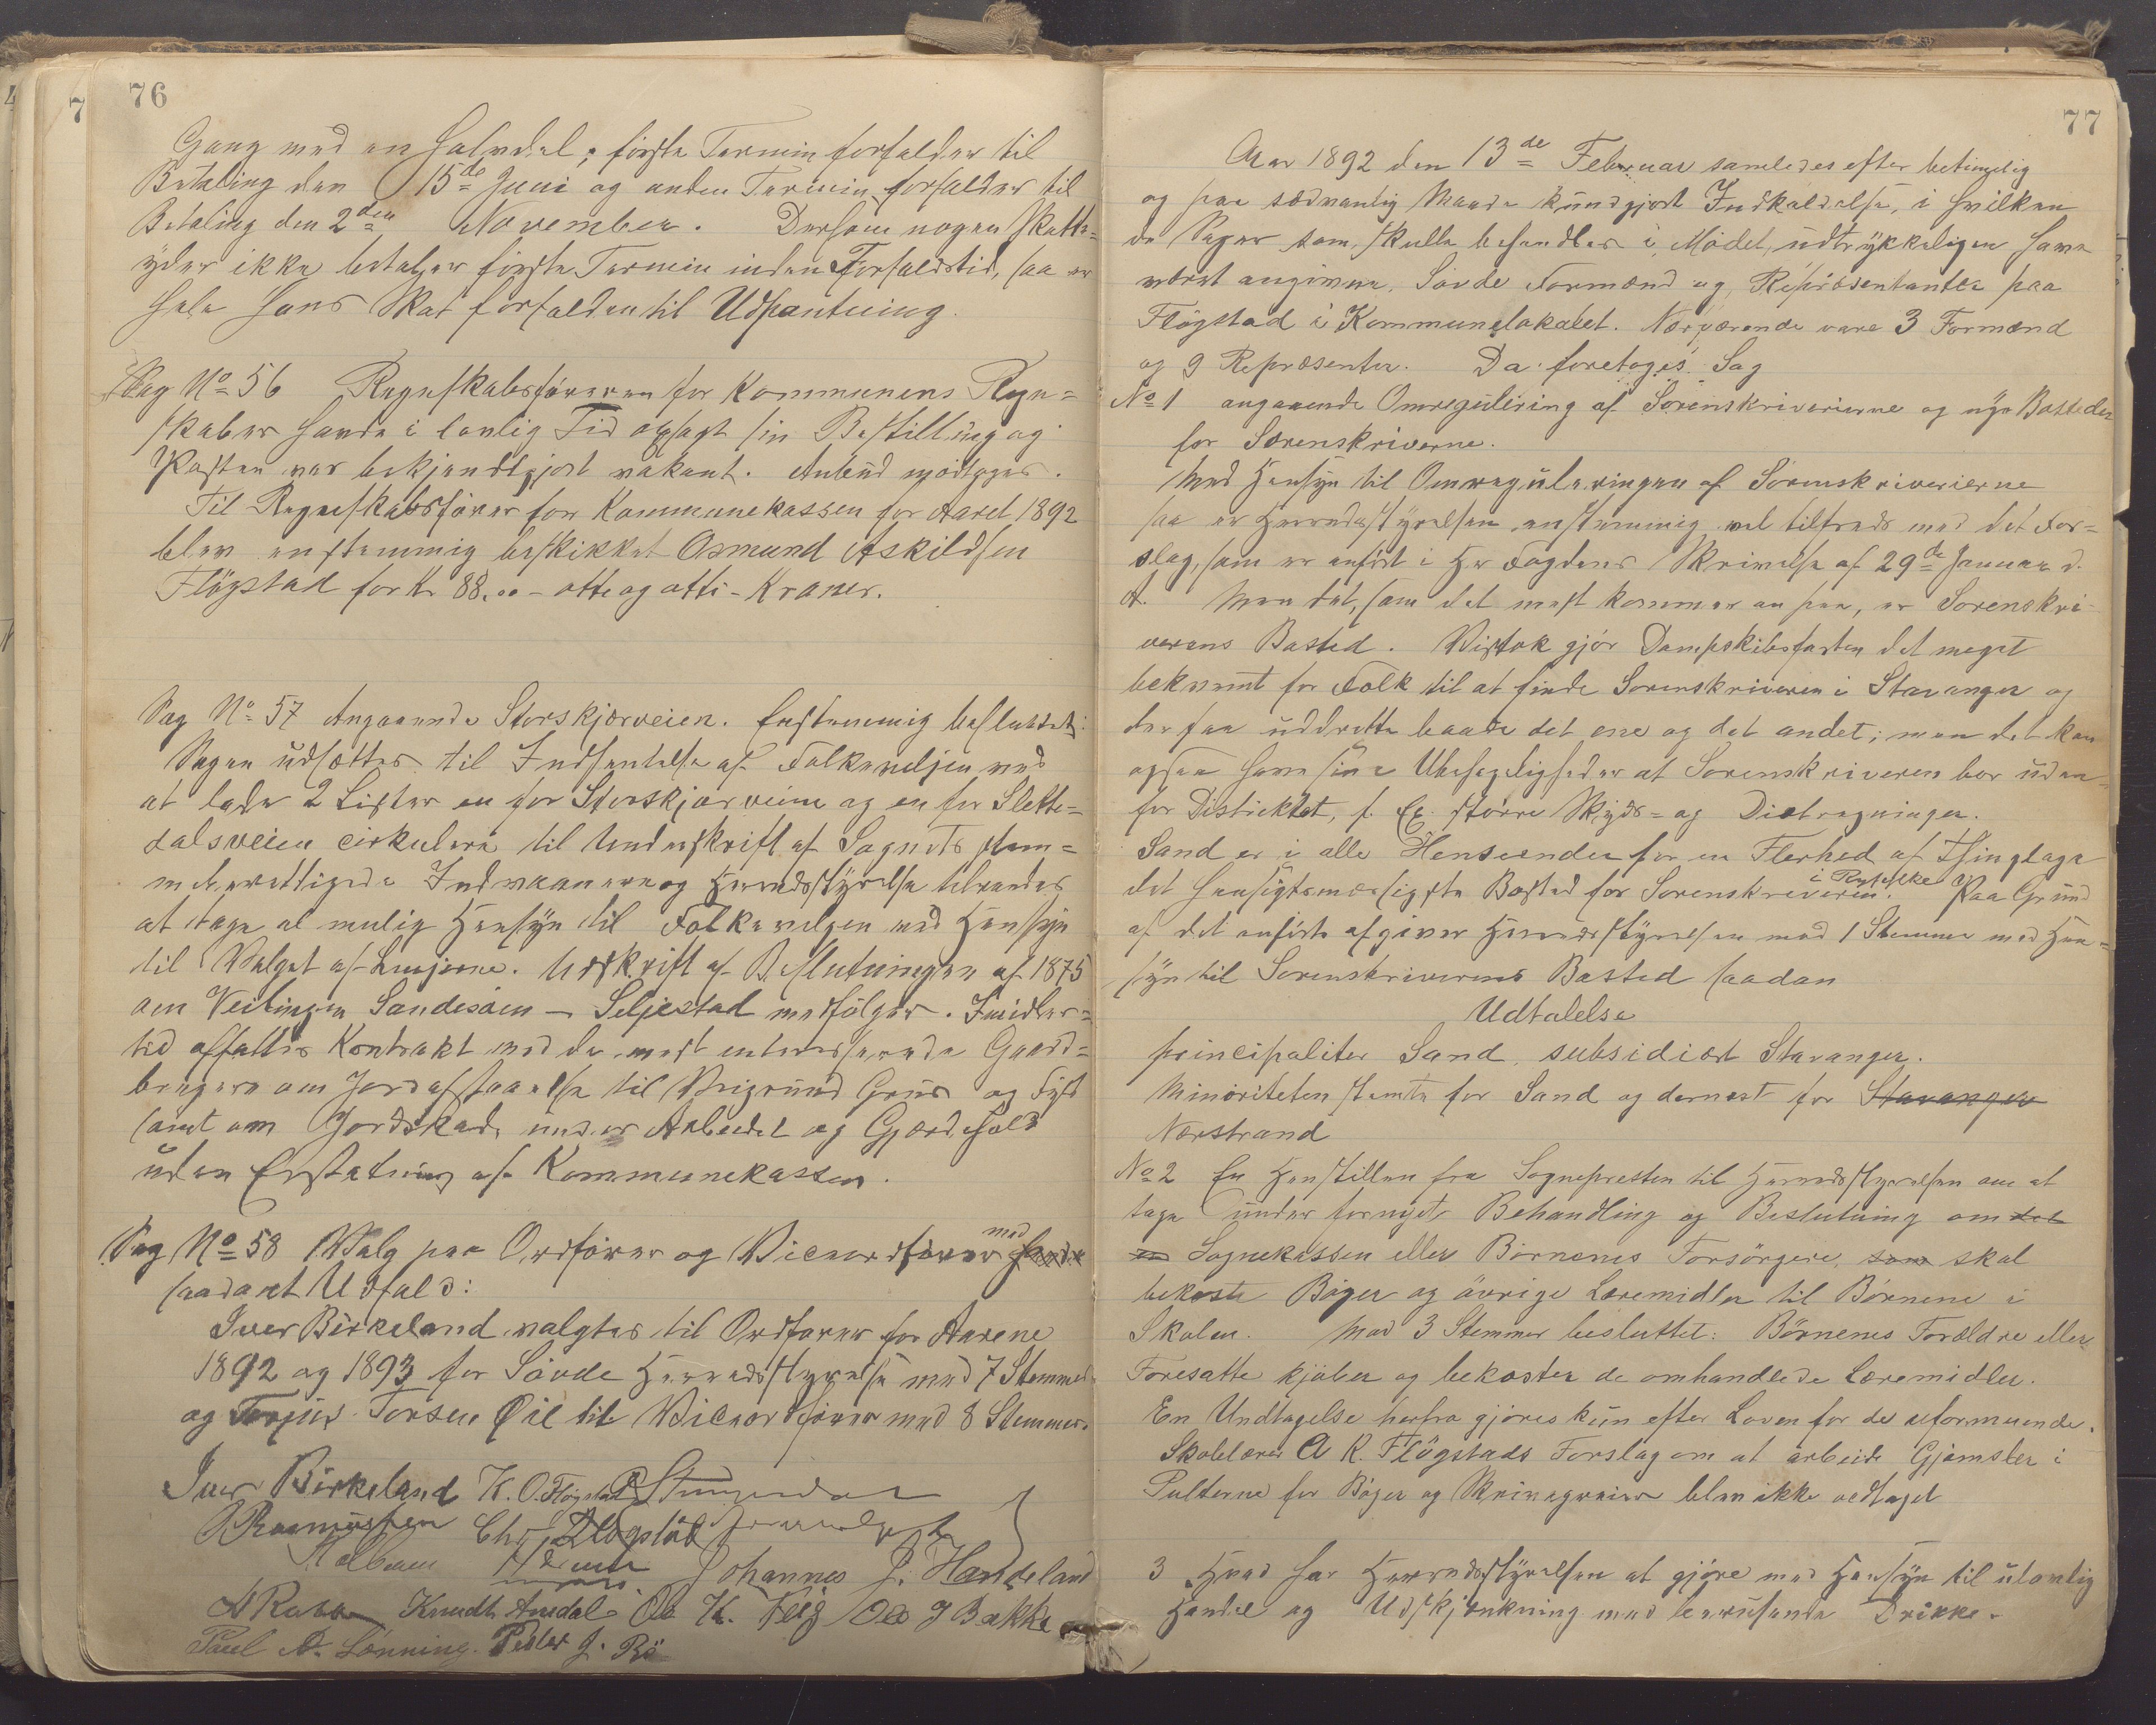 76
Gang med en Halvdel; første Termin forfalder til
Betaling den 15de Juni og anden Termin forfalder til
Betaling den 2den November. Dersom nogen Skatte=
yder ikke betaler første Termin inden Forfaldstid, saa er
hele hans Skat forfalden til Udpantning.
Sag No 56 Regnskabsføreren for Kommunens Regn=
skaber havde i lovlig Tid opsagt sin Bestilling og
Posten var bekjendtgjort vakant. Anbud modtoges.
Til Regnskabsfører for Kommunekassen for Aaret 1892
blev enstemmig beskikket Osmund Askildsen
Fløgstad for Kr 88.00 – otte og otti – Kroner.
Sag No 57 Angaaende Storskjærveien. Enstemmig besluttet:
Sagen udsættes til Indhentelse af Folkeviljen ved
at lade 2 Lister en for Storskjærveien og en for Slette=
dalsveien cirkulere til Underskrift af Sognets stem=
meberettigede Indvaanere og Herredsstyrelse tilraades
at tage al mulig Hensyn til Folkeviljen med Hensyn
til Valget af Linjerne. Udskrift af Beslutningen af 1875
om Veilinjen Sandesøen – Seljestad medfølger. Imidler=
tid affattes Kontrakt med de mest interesserende Gaard=
brugere om Jordafstaaelse til Veigrund Grus og Fyld
samt om Jordskade under Arbeidet og Gjærdehold
uden Erstatning af Kommunekassen.
Sag No 58 Valg paa Ordfører og Viceordfører med
saadant Udfald:
Iver Birkeland valgtes til Ordfører for Aarene
1892 og 1893 for Søvde Herredsstyrelse med 7 Stemmer
og Torjus Torsen Øie til Viceordfører med 8 Stemmer.
Iver Birkeland K. O. Fløgstad
R Rasmussen Chr. Fløgstad
Johannes J. Handeland
Knudt Amdal Ole K. Ole J Bakke
Paul A. Lønning. Peder J. Bø
77
Aar 1892 den 13de Februar samledes efter betimelig
og paa sædvanlig Maade kundgjort Indkaldelse, i hvilken
de Sager som skulle behandles i Mødet, udtrykkeligen have
været angivne, Søvde Formænd og Repræsentanter paa
Fløgstad i Kommunelokalet. Nærværende vare 3 Formænd
og 9 Repræsenter. Da foretoges Sag
No 1 angaaende Omregulering af Sorenskriverierne og nye Bosteder
for Sorenskriverne.
Med Hensyn til Omreguleringen af Sorenskriverierne
saa er Herredsstyrelsen enstemmig vel tilfreds med det For=
slag, som er anført i Hr Fogdens Skrivelse af 29de Januar d.
A. Men det, som det mest kommer an paa, er Sorenskri=
verens Bosted. Vistnok gjør Dampskibsfarten det meget
bekvemt for Folk til at finde Sorenskriveren i Stavanger og
der faa uddrette baade det ene og det andet; men det kan
ogsaa have sine Ubehageligheder at Sorenskriveren bor uden=
for Distriktet, f. Ex. større Skyds= og Diætregninger.
Sand er i alle Henseender for en Flerhed af Thinglage
det hensigtsmæssigste Bosted for Sorenskriveren i Ryfylke. Paa Grund
af det anførte afgiver Herredsstyrelsen med 1 Stemme med Hen=
syn til Sorenskriverens Bosted saadan
Udtalelse
principaliter Sand, subsidiært Stavanger.
Minoriteten stemte for Sand og dernæst for Stavanger
Nærstrand
No 2 En Henstillen fra Sognepresten til Herredsstyrelsen om at
tage under fornyet Behandling og Beslutning om det
en Sognekassen eller Børnenes Forsørgere, som skal
bekoste Bøger og øvrige Læremidler til Børnene i
Skolen. Med 3 Stemmer besluttet: Børnenes Forældre eller
Foresatte kjøber og bekoster de omhandlede Læremidler.
En Undtagelse herfra gjøres kun efter Loven for de uformuende.
Skolelærer A K. Fløgstads Forslag om at arbeide Gjemsler i
Pulterne for Bøger og Skrivegreier blev ikke vedtaget
3 Hvad har Herredsstyrelsen at gjøre med Hensyn til ulovlig
Handel og Udskjænkning med berusende Drikke.